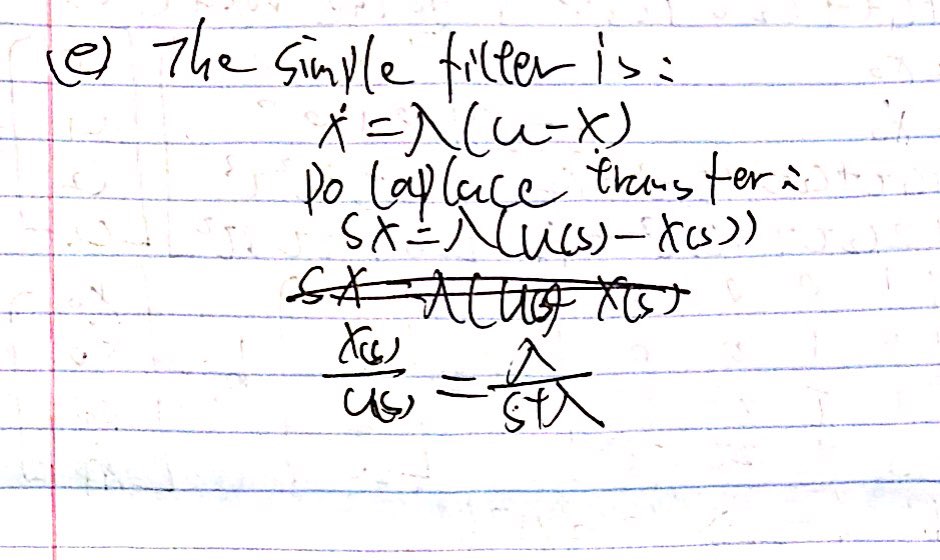 (e) The simple filter is:
ẋ = λ(u-x)
Do laplace transfer:
sx = λ(u(s) - x(s))
sx = λ(u(s) - x(s)
x(s)/u(s) = λ/s+λ